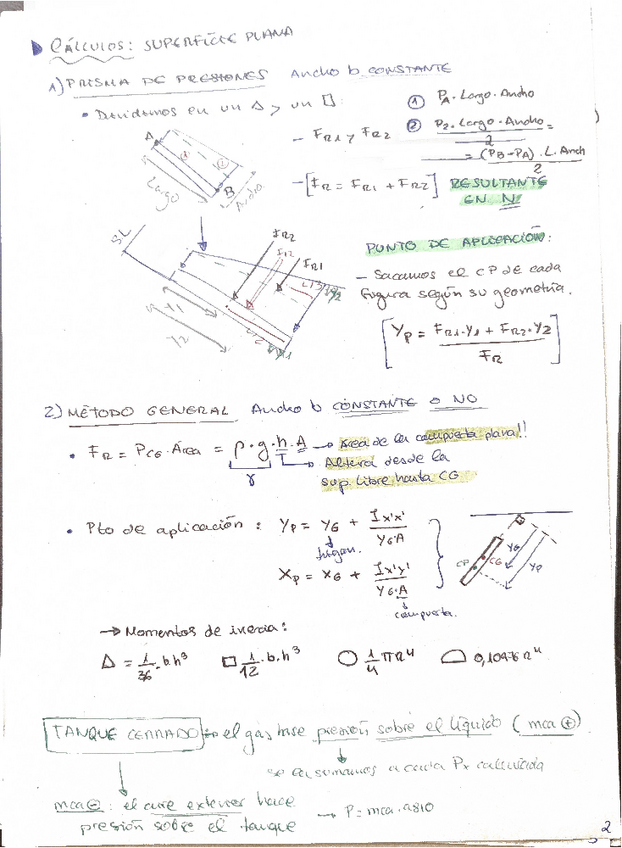 CÁLCULOS: SUPERFICIE PLANA
1) PRISMA DE PRESIONES Ancho b CONSTANTE
• Dividimos en un △ y un □:
① PA · Largo · Ancho
② P2 · Largo · Ancho =
2
= (PB - PA) · L · Anch
2
- FR1 y FR2
A
B
Largo
Ancho
- [FR = FR1 + FR2] RESULTANTE
EN N
SL
FR2
FR
FR1
Y1
Y2
PUNTO DE APLICACIÓN:
- Sacamos el CP de cada
figura según su geometría.
[YP = FR1·Y1 + FR2·Y2]
FR
2) MÉTODO GENERAL Ancho b CONSTANTE O NO
• FR = PCG · Área = ρ · g · h · A → Área de la compuerta plana!!
γ
→ Altura desde la
sup. libre hasta CG
• Pto de aplicación: YP = YG + Ix'x'
YG·A
XP = XG + Ix'y'
YG·A
compuerta.
CP
CG
YG
YP
→ Momentos de inercia:
△ = 1/36 · b·h³ □ 1/12 · b·h³ ○ 1/4 πR⁴ ⌓ 0,1097R⁴
TANQUE CERRADO el gas hace presión sobre el líquido (mca ⊕)
se la sumamos a cada Px calculada
mca ⊖: el aire exterior hace
presión sobre el tanque
→ P = mca · 9810
2